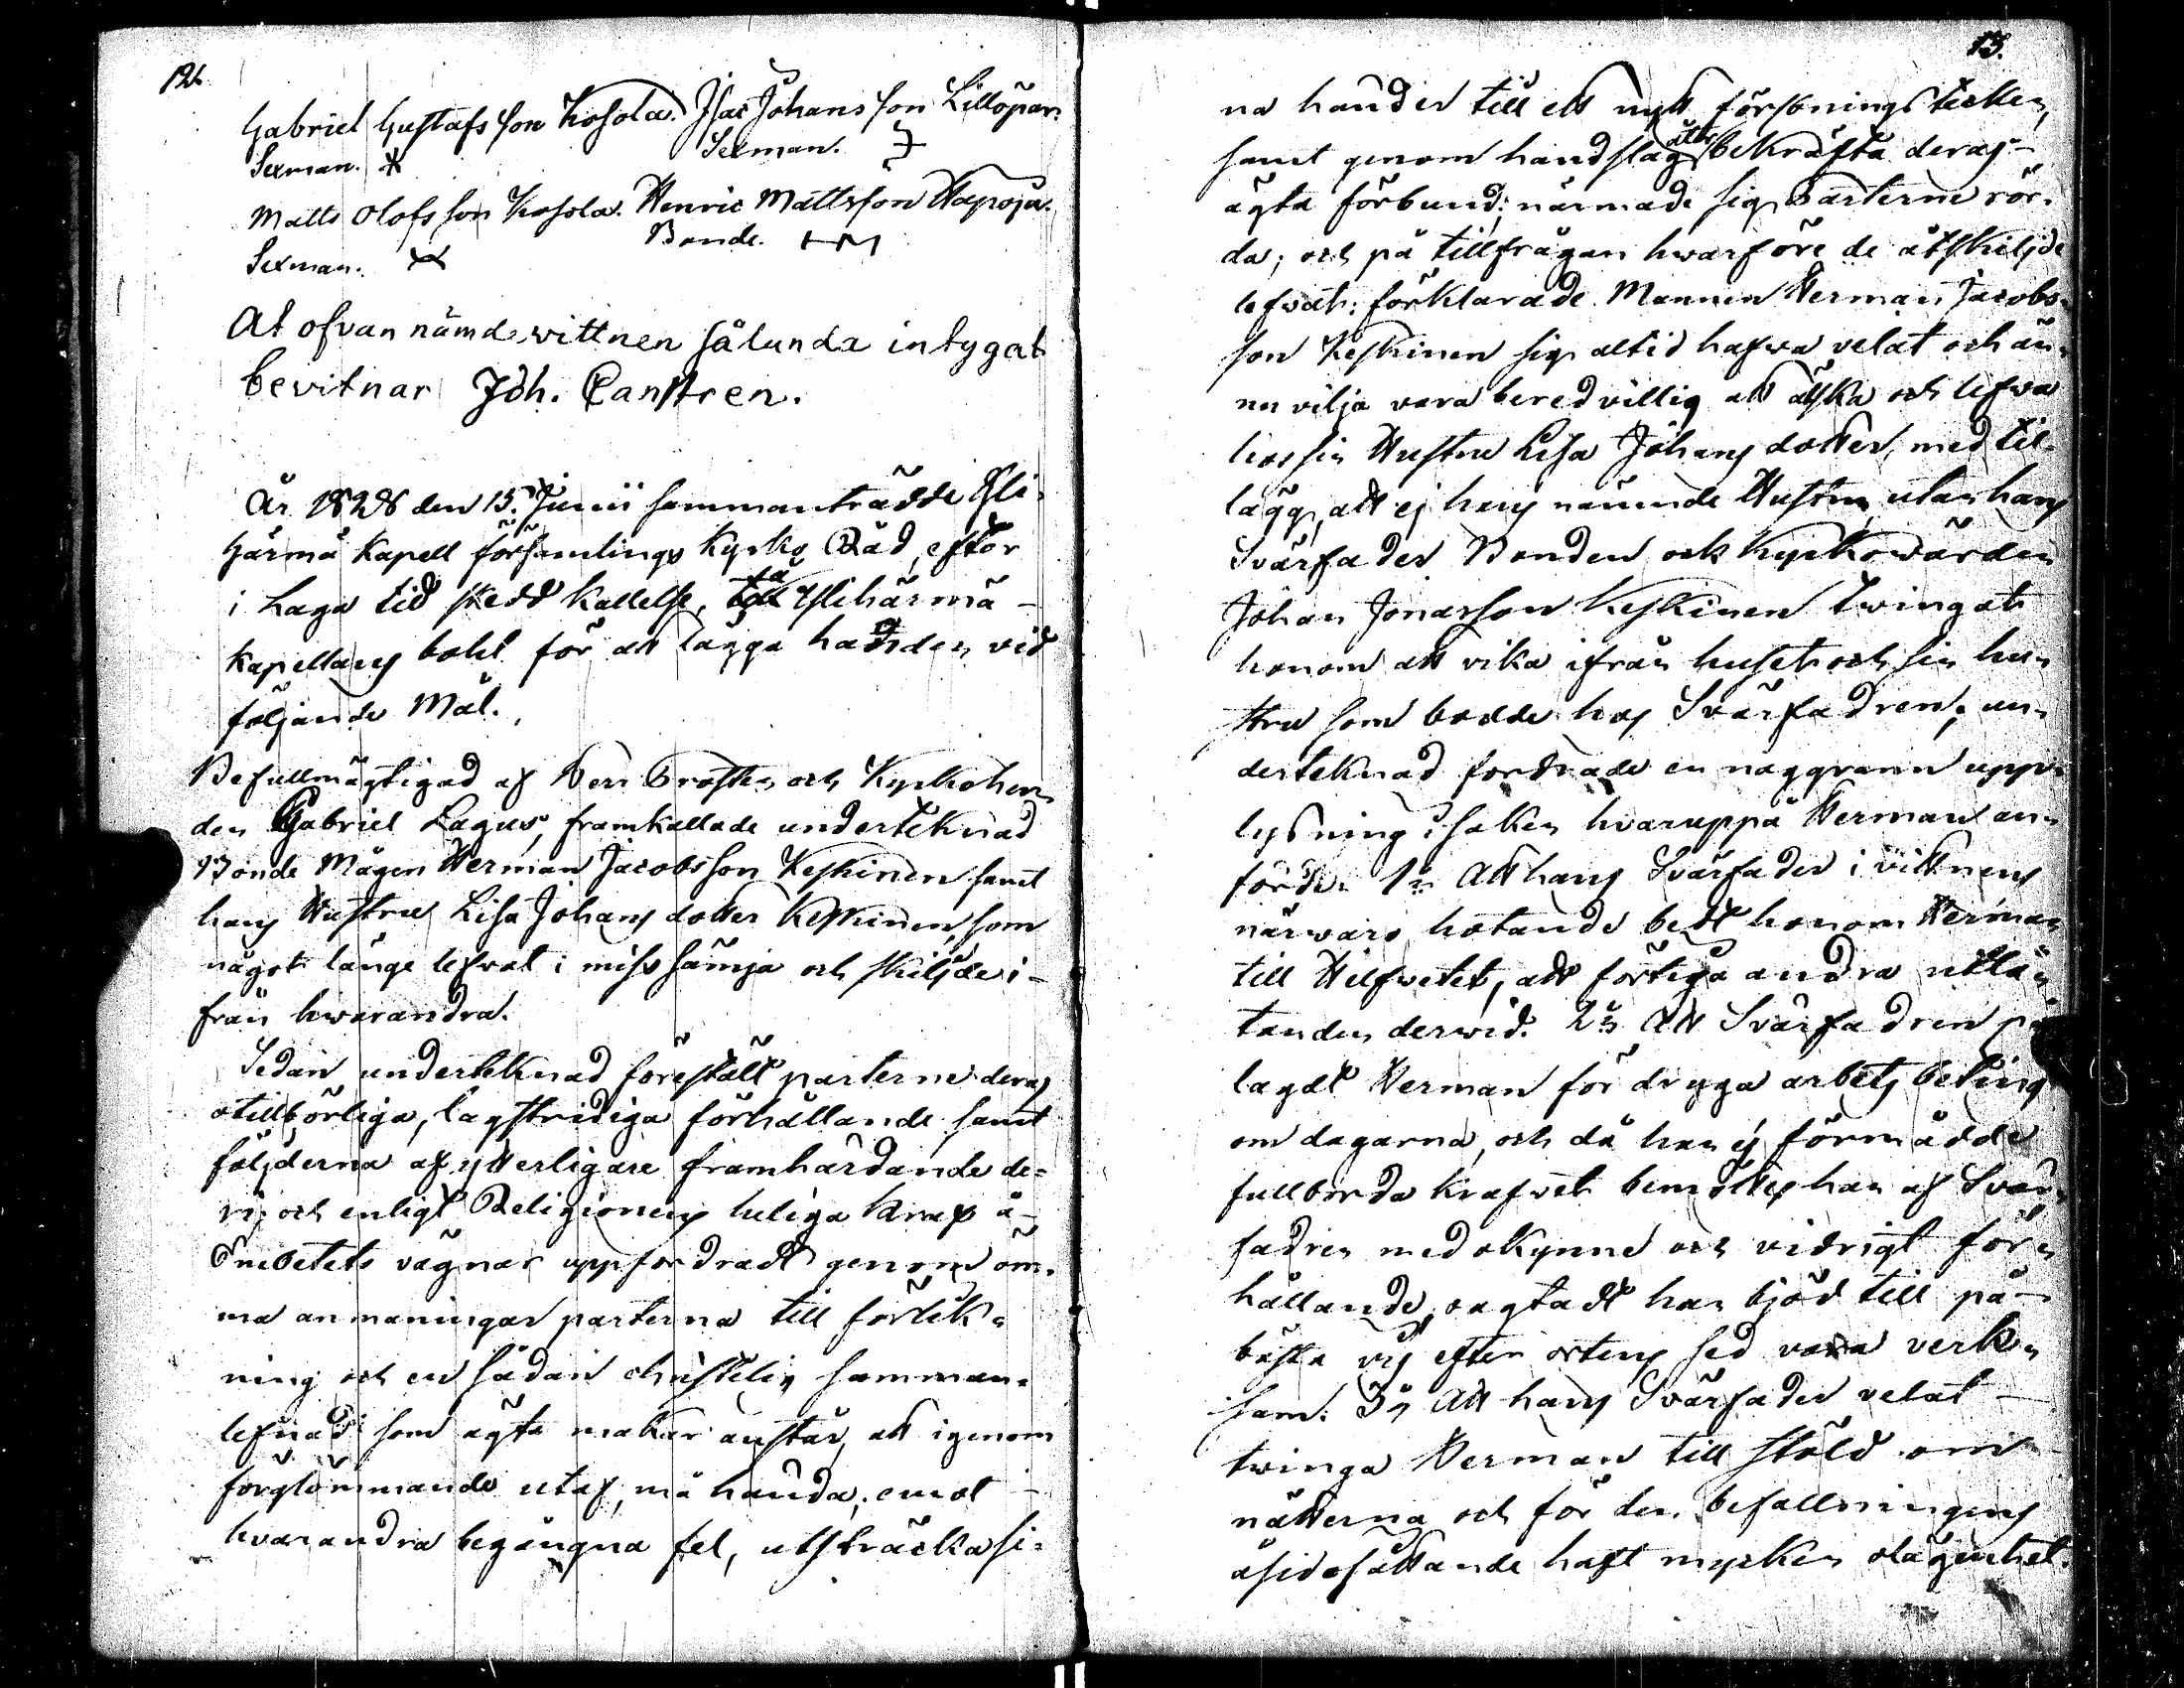 12.
Gabriel Gustafs son Kosola. Isac Johans son Lillöpar.
Sexman. Sexman.
Matts Olofs son Kosola. Henric Mattsson Hapoja.
Sexman. Bonde.
At ofvan nämde wittnen sålunda intygat
bevitnar Joh. Canstren.
År 1828 den 15. Junii sammanträdde Yli-
härmä Kapell församlings Kyrko Råd, efter
i Laga tid skedd kallelse, på Ylihärmä
Kapellans bohl för att lägga handen vid
följande Mål.
Befullmägtigad af Herr Prosten och Kyrkoher-
den Gabriel Lagus, framkallade underteknad
Bonde Mågen Herman Jacobsson Keskinen samt
hans Hustru Lisa Johans dotter Keskinen, som
något länge lefvat i miss sämja och skiljde i-
från hwarandra.
Sedan underteknad förestält parterne deras
otillbörliga, lagstridiga förhållande samt
följderna af ytterligare framhärdande de-
ri; och enligt Religionens heliga kraf å
Embetets vägnar uppfordradt genom öm-
ma anmaningar parterna till förlik-
ning och en sådan christelig samman-
lefnad som ägta makar anstår, att igenom
förglömmande utaf, må hända, emot
hvarandra begångna fel, utsträcka si-
13.
na händer till ett nytt försonings tecken,
samt genom handslag åter bekräfta deras
ägta förbund; närmade sig Parterne rör-
da; och på tillfrågan hwarföre de åtskiljde
lefvat: förklarade Mannen Herman Jacobs-
son Keskinen sig altid hafwa velat och än-
nu vilja vara beredvillig att älska och lefwa
hos sin Hustru Lisa Johans dotter, med til-
lägg, att ej hans nämnde Hustru, utan hans
Svärfader Bonden och Kyrkowärden
Johan Jonasson Keskinen twingat
honom att vika ifrån huset och sin hu-
stru som bodde hos Svärfadren; un-
derteknad fordrade en noggrann upp-
lysning i saken hvaruppå Herman an-
förde: 1:o Att hans Svärfader i vittnens
närwaro hotande bedt honom Herman
till Hilfvetet, att förtiga andra utlå-
tanden derwid. 2:o Att Svärfadren på
lagdt Herman för dryga arbets beting
om dagarna, och då han ej förmådde
fullborda krafvet bemöttes han af Svär-
fadren med okynne och vidrigt för-
hållande, oagtadt han bjöd till på
bästa vis efter ortens sed vara verk-
sam. 3:o Att hans Svärfader velat
twinga Herman till stöld om
nätterna och för den befallningens
åsidosättande haft mycken olägenhet.